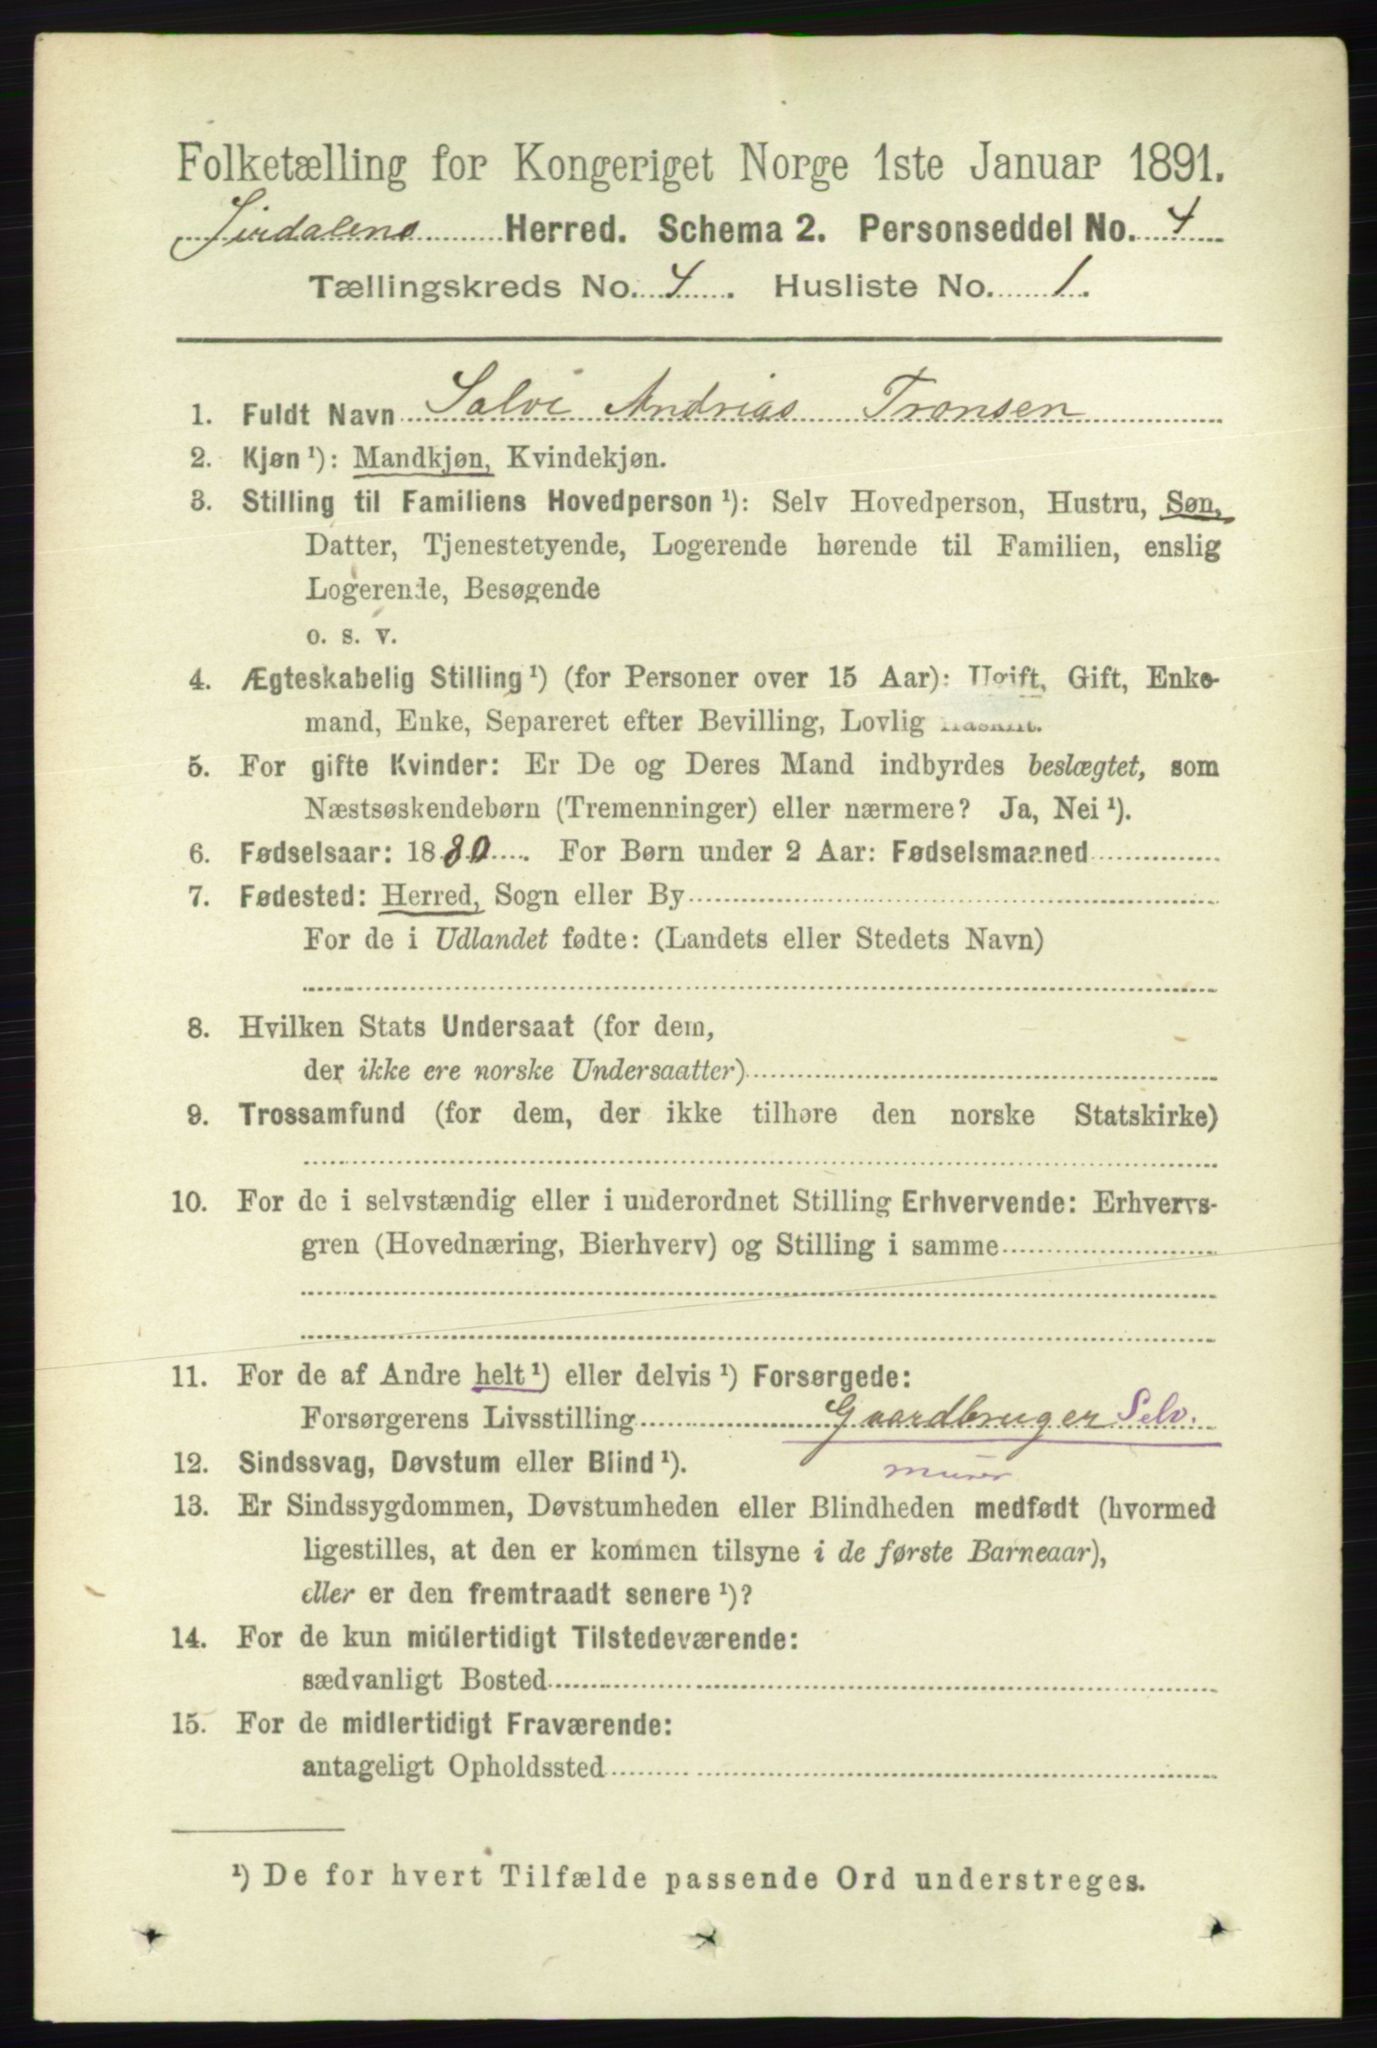 Folketælling for Kongeriget Norge 1ste Januar 1891.
Sirdalens Herred. Schema 2. Personseddel No. 4
Tællingskreds No. 4. Husliste No. 1.
1. Fuldt Navn Salve Andrias Tronsen
2. Kjøn ¹): Mandkjøn, Kvindekjøn.
3. Stilling til Familiens Hovedperson ¹): Selv Hovedperson, Hustru, Søn,
Datter, Tjenestetyende, Logerende hørende til Familien, enslig
Logerende, Besøgende
o. s. v.
4. Ægteskabelig Stilling ¹) (for Personer over 15 Aar): Ugift, Gift, Enke-
mand, Enke, Separeret efter Bevilling, Lovlig
5. For gifte Kvinder: Er De og Deres Mand indbyrdes beslægtet, som
Næstsøskendebørn (Tremenninger) eller nærmere? Ja, Nei ¹).
6. Fødselsaar: 1880. For Børn under 2 Aar: Fødselsmaaned
7. Fødested: Herred, Sogn eller By
For de i Udlandet fødte: (Landets eller Stedets Navn)
8. Hvilken Stats Undersaat (for dem,
der ikke ere norske Undersaatter)
9. Trossamfund (for dem, der ikke tilhøre den norske Statskirke)
10. For de i selvstændig eller i underordnet Stilling Erhvervende: Erhvervs-
gren (Hovednæring, Bierhverv) og Stilling i samme
11. For de af Andre helt ¹) eller delvis ¹) Forsørgede:
Forsørgerens Livsstilling Gaardbruger Selv.
12. Sindssvag, Døvstum eller Blind ¹). murer
13. Er Sindssygdommen, Døvstumheden eller Blindheden medfødt (hvormed
ligestilles, at den er kommen tilsyne i de første Barneaar),
eller er den fremtraadt senere ¹)?
14. For de kun midlertidigt Tilstedeværende:
sædvanligt Bosted
15. For de midlertidigt Fraværende:
antageligt Opholdssted
¹) De for hvert Tilfælde passende Ord understreges.